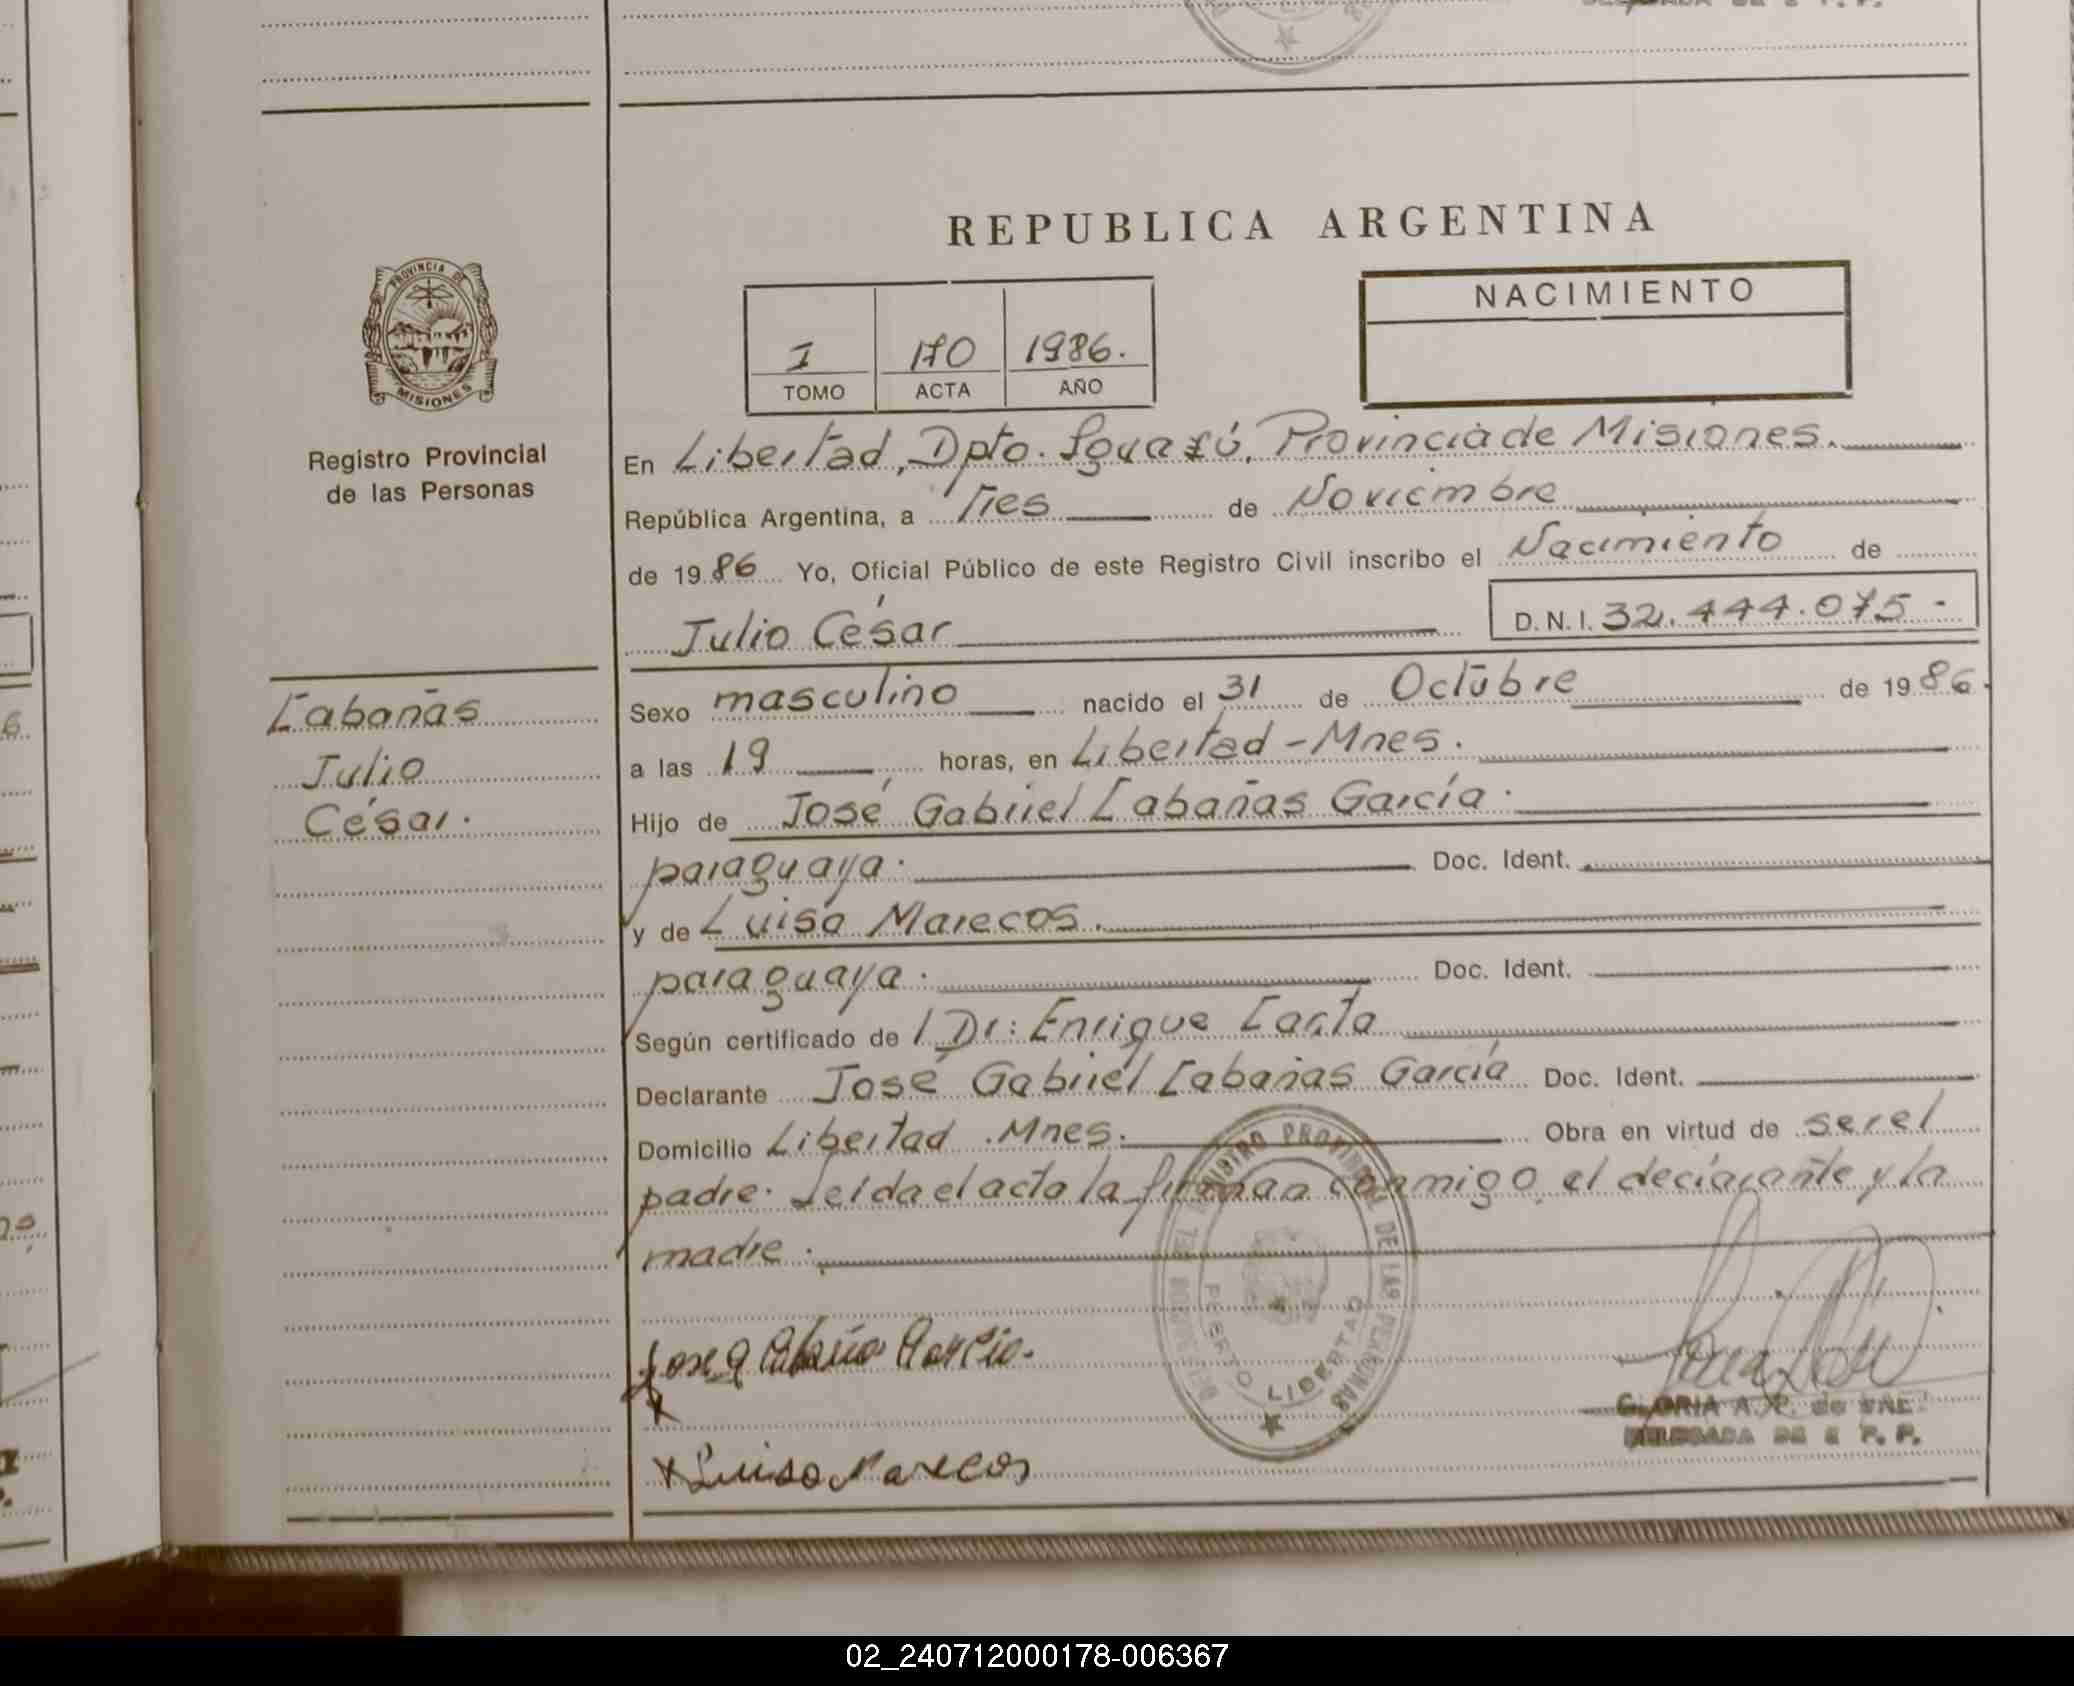 REPUBLICA ARGENTINA
PROVINCIA DE
MISIONES
Registro Provincial
de las Personas
I 170 1986.
TOMO ACTA AÑO
NACIMIENTO
En Libertad, Dpto. Iguazú, Provincia de Misiones.
República Argentina, a Tres de Noviembre
de 1986 Yo, Oficial Público de este Registro Civil inscribo el Nacimiento de
Julio César D.N.I. 32.444.075-
Cabañas
Julio
César.
Sexo masculino nacido el 31 de Octubre de 1986.
a las 19 horas, en Libertad-Mnes.
Hijo de José Gabriel Cabañas García.
paraguaya. Doc. Ident.
y de Luisa Marecos.
paraguaya. Doc. Ident.
Según certificado de Dr: Enrique
Declarante José Gabriel Cabañas García Doc. Ident.
Domicilio Libertad. Mnes. Obra en virtud de ser el
padre. Leída el acta la firman conmigo, el declarante y la
madre.
REGISTRO PROVINCIAL DE LAS PERSONAS
PUERTO LIBERTAD
Jose G Cabaña Garcia.
x
x Luisa Marecos
GLORIA A. P. de
DELEGADA DE
02_240712000178-006367